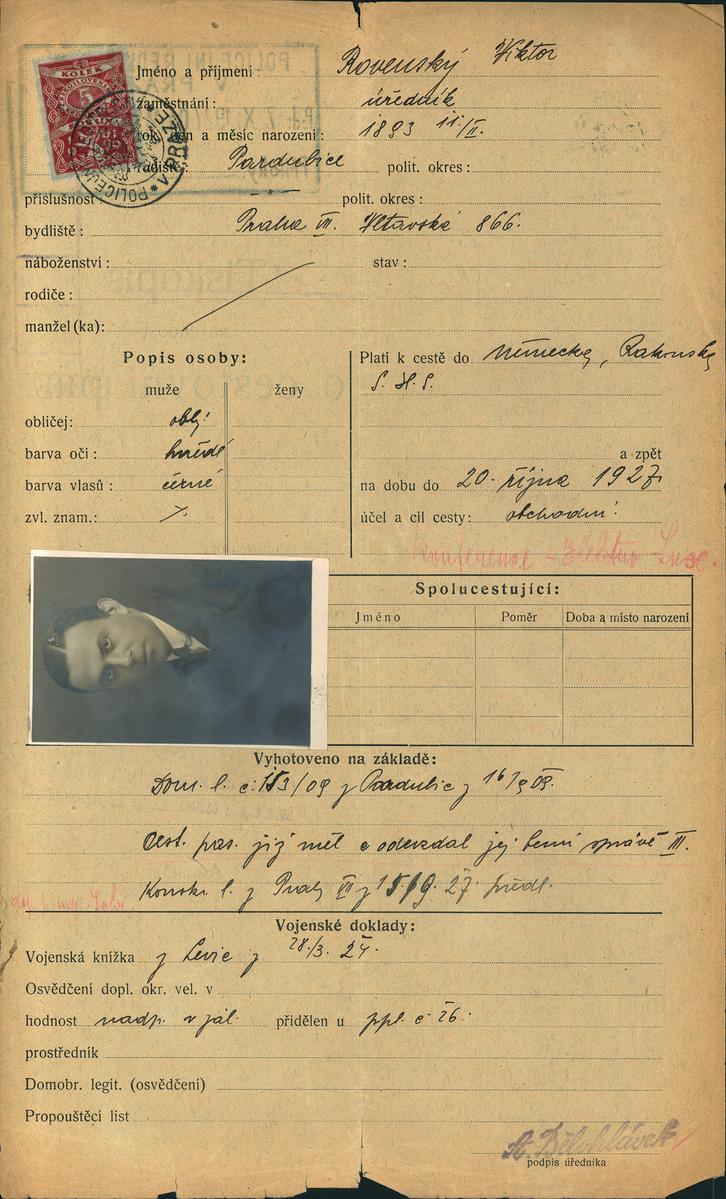 KOLEK
5
Jméno a příjmení: Rovenský Viktor
zaměstnání: úředník
rok, den a měsíc narození: 1893 11./II.
radiště: Pardubice polit. okres:
příslušnost: -"- polit. okres:
bydliště: Praha VII. Vltavská 866.
náboženství: stav:
rodiče:
manžel (ka):
Popis osoby:
muže ženy
obličej: oblý
barva očí: hnědé
barva vlasů: černé
zvl. znam.:
Platí k cestě do Německa, Rakouska
S. H. S.
a zpět
na dobu do 20. října 1927
účel a cíl cesty: obchodní
konference - Elektro-Lux.
Spolucestující:
Jméno Poměr Doba a místo narození
Vyhotoveno na základě:
Dom. l. č. 153/09 z Pardubic z 16/9 09.
Cest. pas. již měl a odevzdal jej berní správě III.
Konskr. l. z Prahy VII z 15/9. 27. předl.
Vojenské doklady:
Vojenská knížka z Levic z 28./3. 24.
Osvědčení dopl. okr. vel. v
hodnost nadp. v zál. přidělen u ppl. č 26.
prostředník
Domobr. legit. (osvědčení)
Propouštěcí list
A. Bělohlávek
podpis úředníka